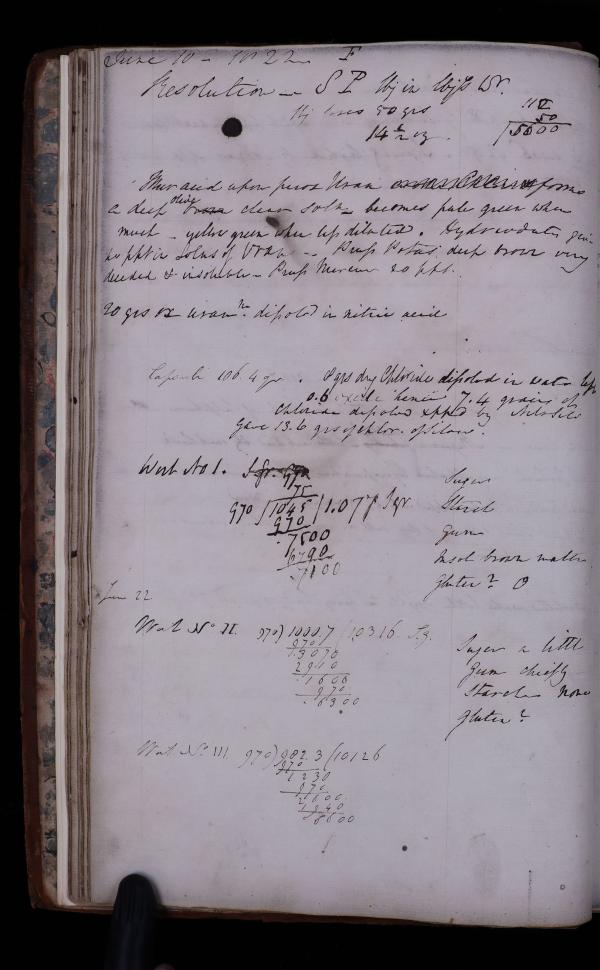 June 10 - 1822 F
Resolution - S P
loses 50 grs
14 1/2 oz.
112
50
5600
Mur acid upon perox Uran forms
a deep olive clear soln - becomes pale green when
much - yellow green when less diluted. Hydriodate give
no ppt in solns of Uran - Pruss Potas deep brown very
decided & insoluble - Pruss Mercury no ppt.
20 grs ox uranm. dissolved in nitric acid
Capsule 106.4 grs. 8 grs dry Chloride dissolved in water left
0.6 oxide hence 7.4 grains of
Chloride dissolved ppted by Nit Silv
gave 13.6 grs of chlor. of silver.
Wort No 1. S gr. 970
75
970 ) 1045 ( 1.077 S gr
970
7500
6790
7100
Sugar
Starch
Gum
Insol brown matter
Gluten? 0
June 22
Wort No II. 970) 1000.7 (1.0316 S.g.
970
3070
2910
1600
970
6300
Sugar a little
Gum chiefly
Starch none
Gluten?
Wort No III 970) 982.3 (10126
970
1230
970
2600
1940
6600